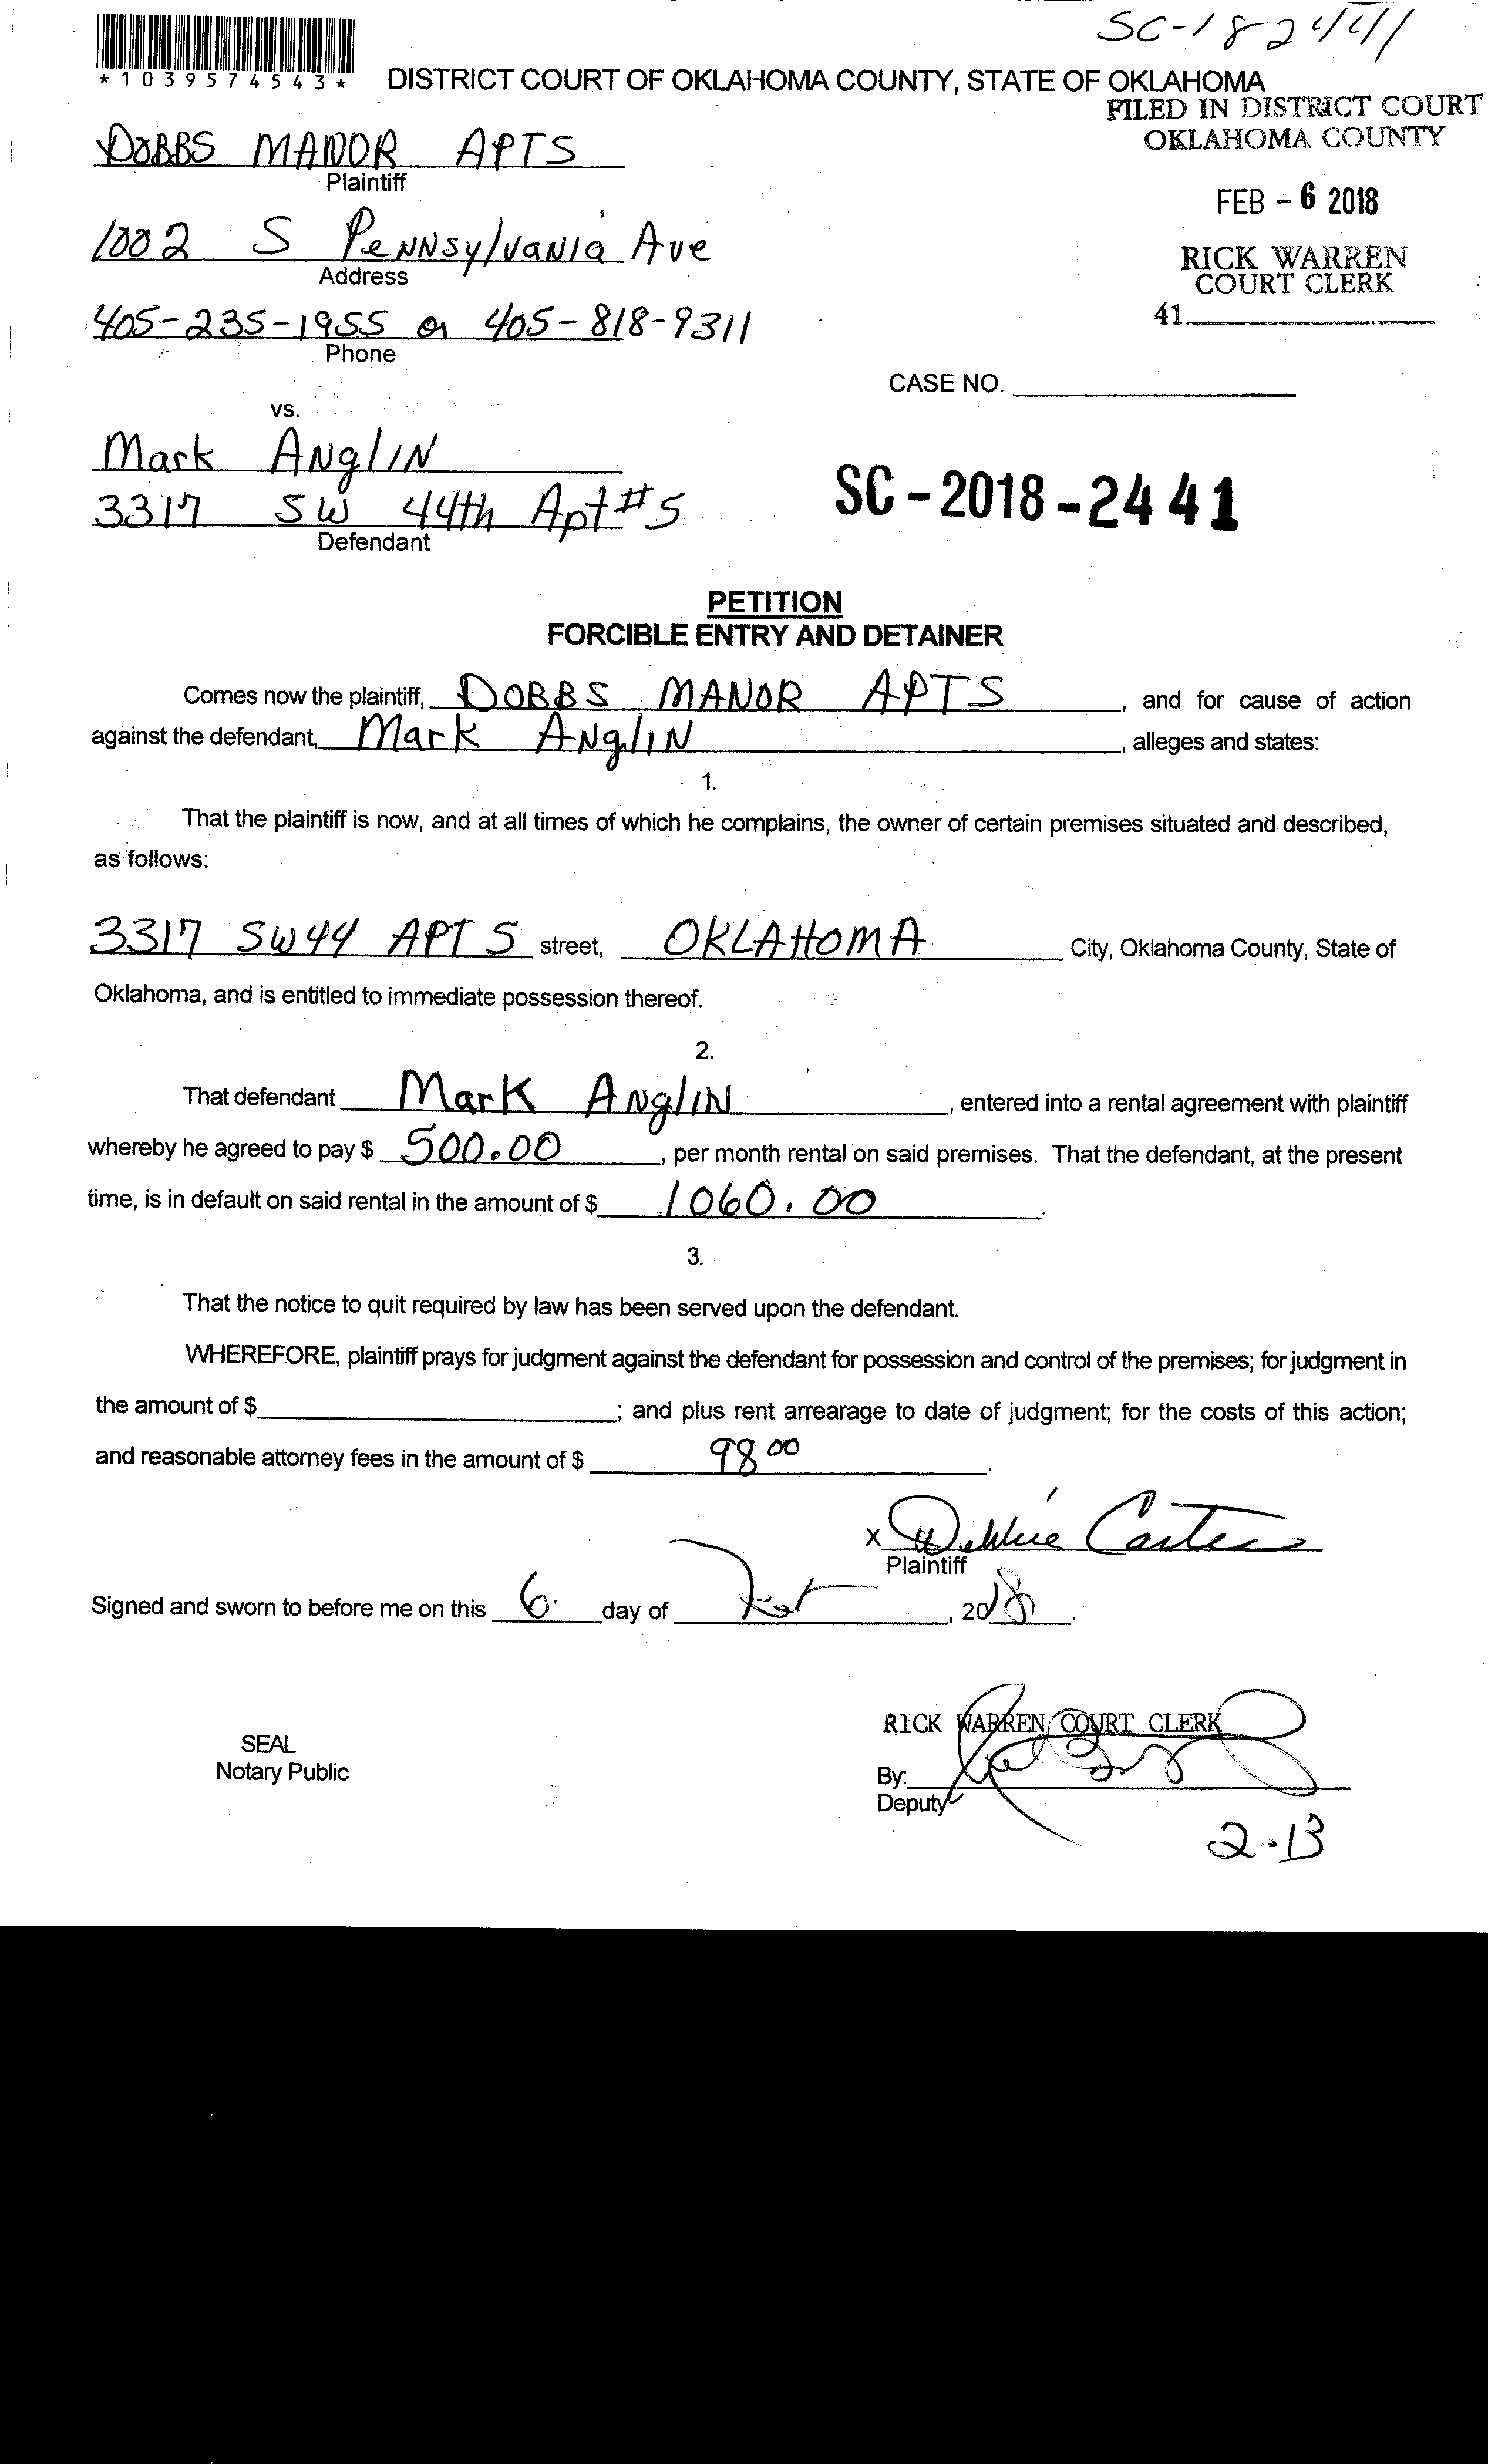 SC-18-2441
*1039574543*
DISTRICT COURT OF OKLAHOMA COUNTY, STATE OF OKLAHOMA
FILED IN DISTRICT COURT
OKLAHOMA COUNTY
DOBBS MANOR APTS
Plaintiff
FEB - 6 2018
1002 S Pennsylvania Ave
Address
RICK WARREN
COURT CLERK
41
405-235-1955 or 405-818-9311
Phone
CASE NO.
vs.
Mark Anglin
3317 SW 44th Apt #5
Defendant
SC-2018-2441
PETITION
FORCIBLE ENTRY AND DETAINER
Comes now the plaintiff, DOBBS MANOR APTS, and for cause of action
against the defendant, Mark Anglin, alleges and states:
1.
That the plaintiff is now, and at all times of which he complains, the owner of certain premises situated and described,
as follows:
3317 SW 44 APT 5 street, OKLAHOMA City, Oklahoma County, State of
Oklahoma, and is entitled to immediate possession thereof.
2.
That defendant Mark Anglin, entered into a rental agreement with plaintiff
whereby he agreed to pay $ 500.00, per month rental on said premises. That the defendant, at the present
time, is in default on said rental in the amount of $ 1060.00.
3.
That the notice to quit required by law has been served upon the defendant.
WHEREFORE, plaintiff prays for judgment against the defendant for possession and control of the premises; for judgment in
the amount of $; and plus rent arrearage to date of judgment; for the costs of this action;
and reasonable attorney fees in the amount of $ 98 00.
X Debbie Carter
Plaintiff
Signed and sworn to before me on this 6 day of Feb, 2018.
RICK WARREN, COURT CLERK
SEAL
Notary Public
By:
Deputy
2-13